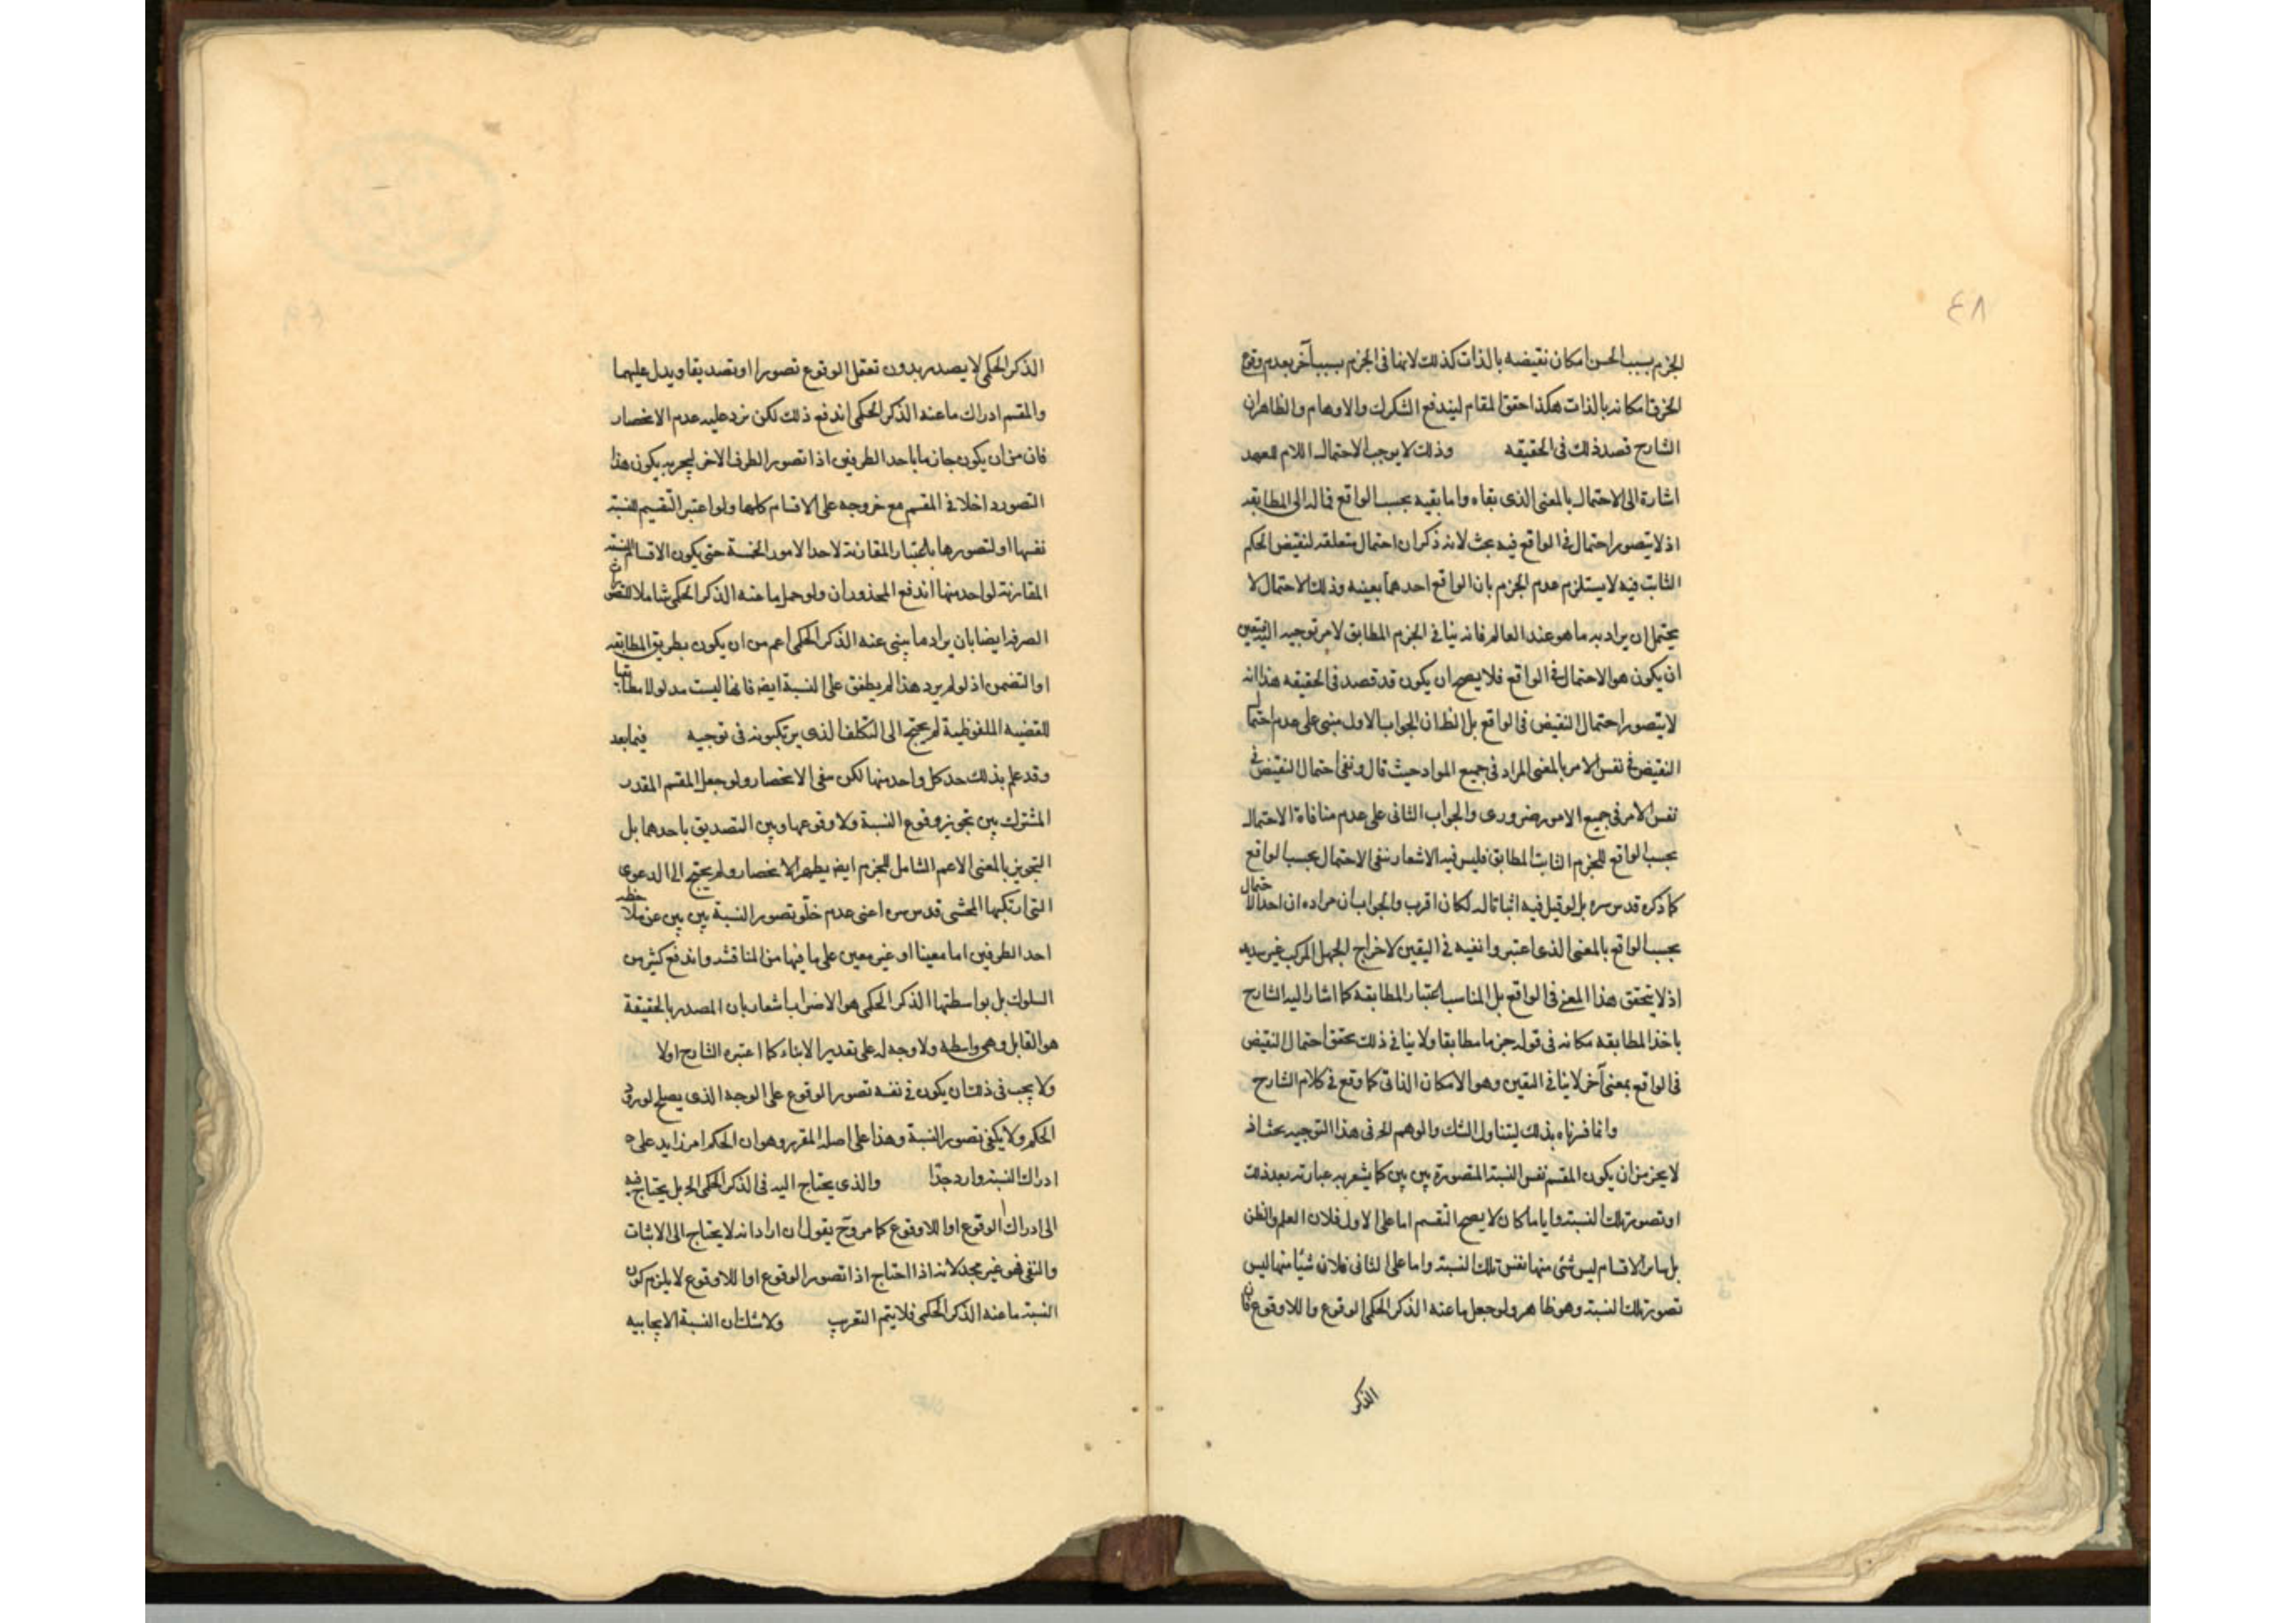 ٤٨
الجزم بسبب الحس امكان نقيضه بالذات كذلك لاينافى الجزم بسبب آخر بعدم وقوع
امكانه بالذات هكذا حقق المقام ليندفع الشكوك والاوهام والظاهر ان
الشارح قصد ذلك فى الحقيقه وذلك لا يوجب الاحتمال اللام للعهد
اشارة الى الاحتمال بالمعنى الذى نفاه واما نفيه بحسب الواقع فماله الى المطابقه
اذ لا يتصور احتمال فى الواقع فيه بحث لانه ذكر ان احتمال متعلقه لنقيض الحكم
الثابت فيه لا يستلزم عدم الجزم بان الواقع احدهما بعينه وذلك الاحتمال لا
يحتمل ان يراد به ما هو عند العالم فانه ينافى الجزم المطابق لامر توجيه
ان يكون هو الاحتمال فى الواقع فلا يصح ان يكون قد قصد فى الحقيقه هذا انه
لا يتصور احتمال النقيض فى الواقع بل الظ ان الجواب الاول مبنى على عدم احتمال
النقيض فى نفس الامر بالمعنى المراد فى جميع المواد حيث قال ونفى احتمال النقيض فى
نفس الامر فى جميع الامور ضرورى والجواب الثانى على عدم منافاة الاحتمال
بحسب الواقع للجزم الثابت المطابق فليس فيه الاشعار بنفى الاحتمال بحسب الواقع
كما ذكره قدس سره بل لو قيل فيه اثبات له لكان اقرب والجواب ان مراده ان احتمال
بحسب الواقع بالمعنى الذى اعتبروا نفيه فى اليقين لاخراج الجهل المركب غير سديد
اذ لا يتحقق هذا المعنى فى الواقع بل المناسب اعتبار المطابقه كما اشار اليه الشارح
باخذ المطابقه مكانه فى قوله جزما مطابقا ولا ينافى ذلك تحقق احتمال النقيض
فى الواقع بمعنى آخر لا ينافى اليقين وهو الامكان الذاتى كما وقع فى كلام الشارح
وانما فسرناه بذلك ليتناول الشك والوهم الخ فى هذا التوجيه بحث اذ
لا يخ من ان يكون المقسم نفس النسبة المتصورة بين بين كما يشعر به عبارته بعد ذلك
او تصور تلك النسبة واياما كان لا يصح التقسيم اما على الاول فلان العلم والظن
بل سائر الاقسام ليس شئ منها نفس تلك النسبة واما على الثانى فلان شيئا منها ليس
تصور تلك النسبة وهو ظاهر ولو جعل ما عنه الذكر الحكمى الوقوع واللاوقوع فان
الذكر
الذكر الحكمى لا يصدر بدون تعقل الوقوع تصورا او تصديقا ويدل عليهما
والمقسم ادراك ما عنه الذكر الحكمى اندفع ذلك لكن يرد عليه عدم الانحصار
فان من ان يكون جازما باحد الطرفين اذا تصور الطرف الاخر يكون هذا
التصور داخلا فى المقسم مع خروجه على الاقسام كلها ولو اعتبر التقسيم للنسبة
نفسها او لتصورها باعتبار المقارنة لاحد الامور الخمسة حتى يكون الاقسام النسبة
المقارنة لواحد منها اندفع المحذوران ولو حمل ما عنه الذكر الحكمى شاملا للتصورات
الصرفه ايضا بان يراد ما ينبى عنه الذكر الحكمى اعم من ان يكون بطريق المطابقه
او التضمن اذ لو لم يرد هذا لم يطلق على النسبة ايضا فانها ليست مدلولا مطابقيا
للقضيه الملفوظية لم يحتج الى التكلف الذى يرتكبونه فى توجيه فيما بعد
وقد علم بذلك حد كل واحد منها لكن بنفى الانحصار ولو جعل المقسم القدر
المشترك بين تجويز وقوع النسبة ولا وقوعها وبين التصديق باحدهما بل
التجويز بالمعنى الاعم الشامل للجزم ايضا يظهر الانحصار ولم يحتج الى الدعوى
التى ارتكبها المحشى قدس سره اعنى عدم خلو تصور النسبة بين بين عن ملاحظة
احد الطرفين اما معينا او غير معين على ما فيها من المناقشه واندفع كثير من
السلوك بل بواسطتها الذكر الحكمى هو الاضراب اشعار بان المصدر بالحقيقة
هو القابل وهى واسطه ولا وجه له على تقدير الابناء كما اعتبره الشارح اولا
ولا يجب فى ذلك ان يكون فى نفسه تصور الوقوع على الوجه الذى يصلح لورود
الحكم ولا يكفى تصور النسبة وهذا على اصله المقرر وهو ان الحكم امر زايد على
ادراك النسبة وارد جدّا والذى يحتاج اليه فى الذكر الحكمى الخ بل يحتاج فيه
الى ادراك الوقوع او اللاوقوع كما مر وح يقول ان اراد انه لا يحتاج الى الاثبات
والنفى فهو غير مجد لانه اذا احتاج اذا تصور الوقوع او اللاوقوع لا يلزم كون
النسبة ما عنه الذكر الحكمى فلا يتم التقريب ولا شك ان النسبة الايجابيه